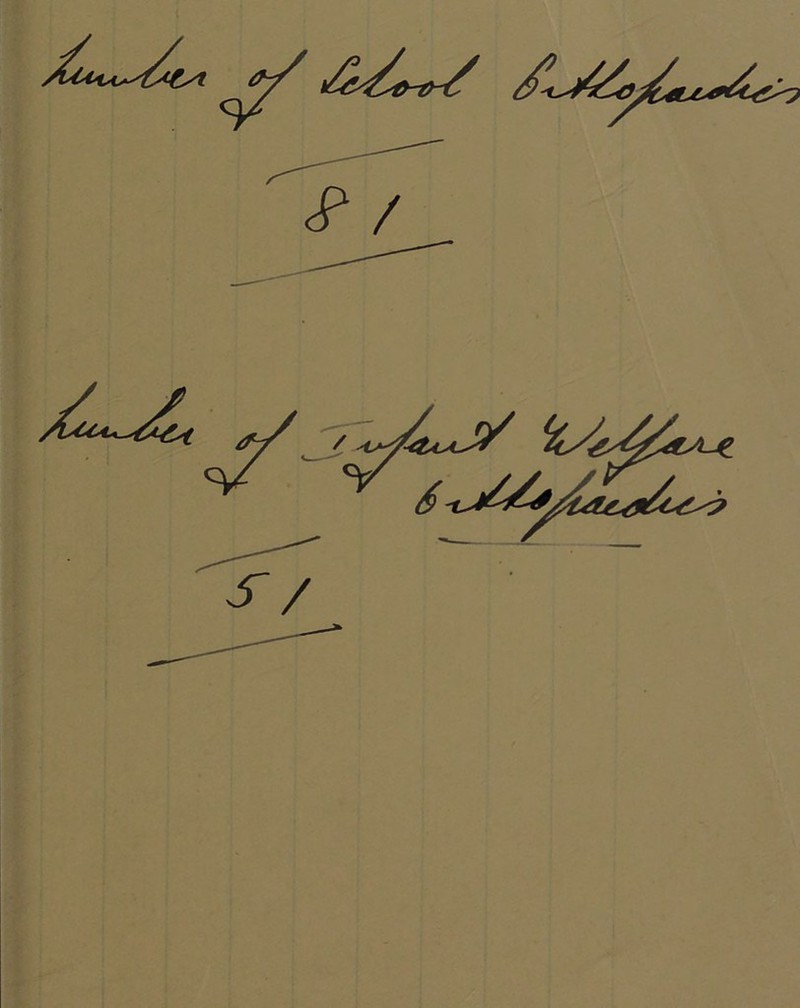 Number of School Orthopaedics
81
Number of Infant Welfare
Orthopaedics
51